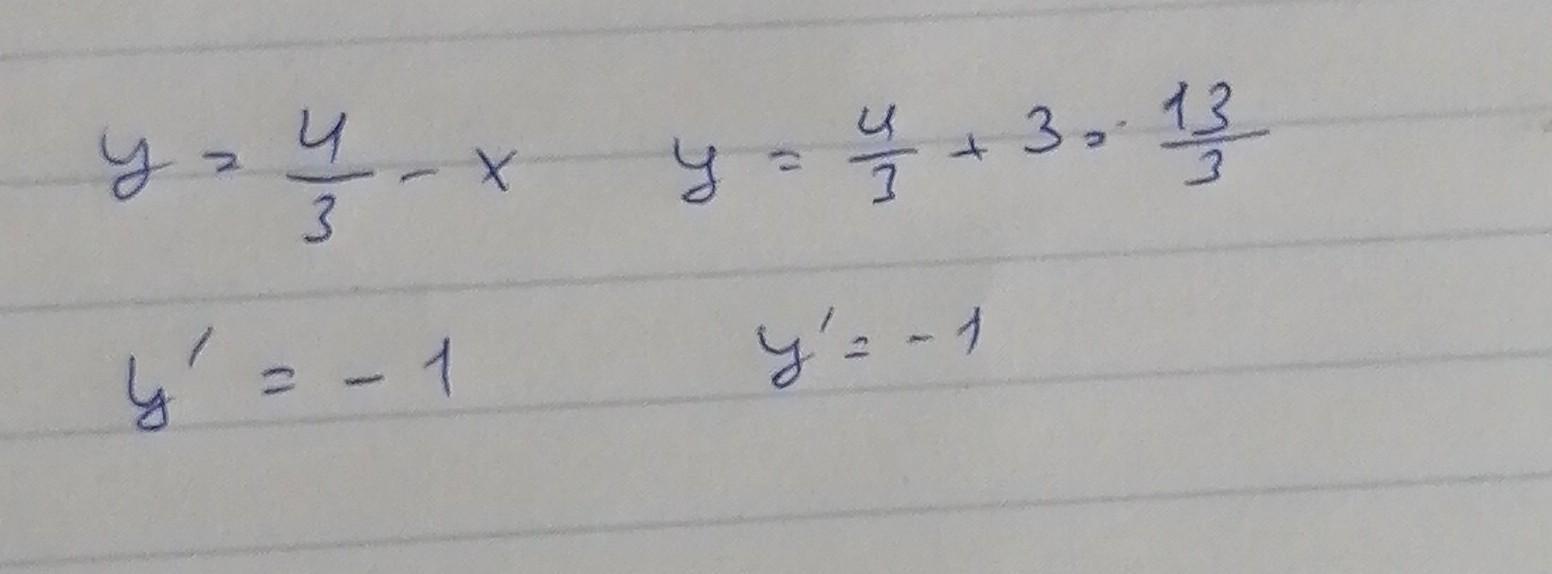 y = 4/3 - x y = 4/3 + 3 = 13/3
y' = - 1 y' = - 1